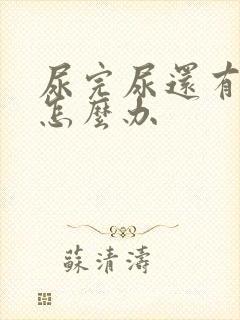 尿完尿還有
怎麼办
蘇清濤